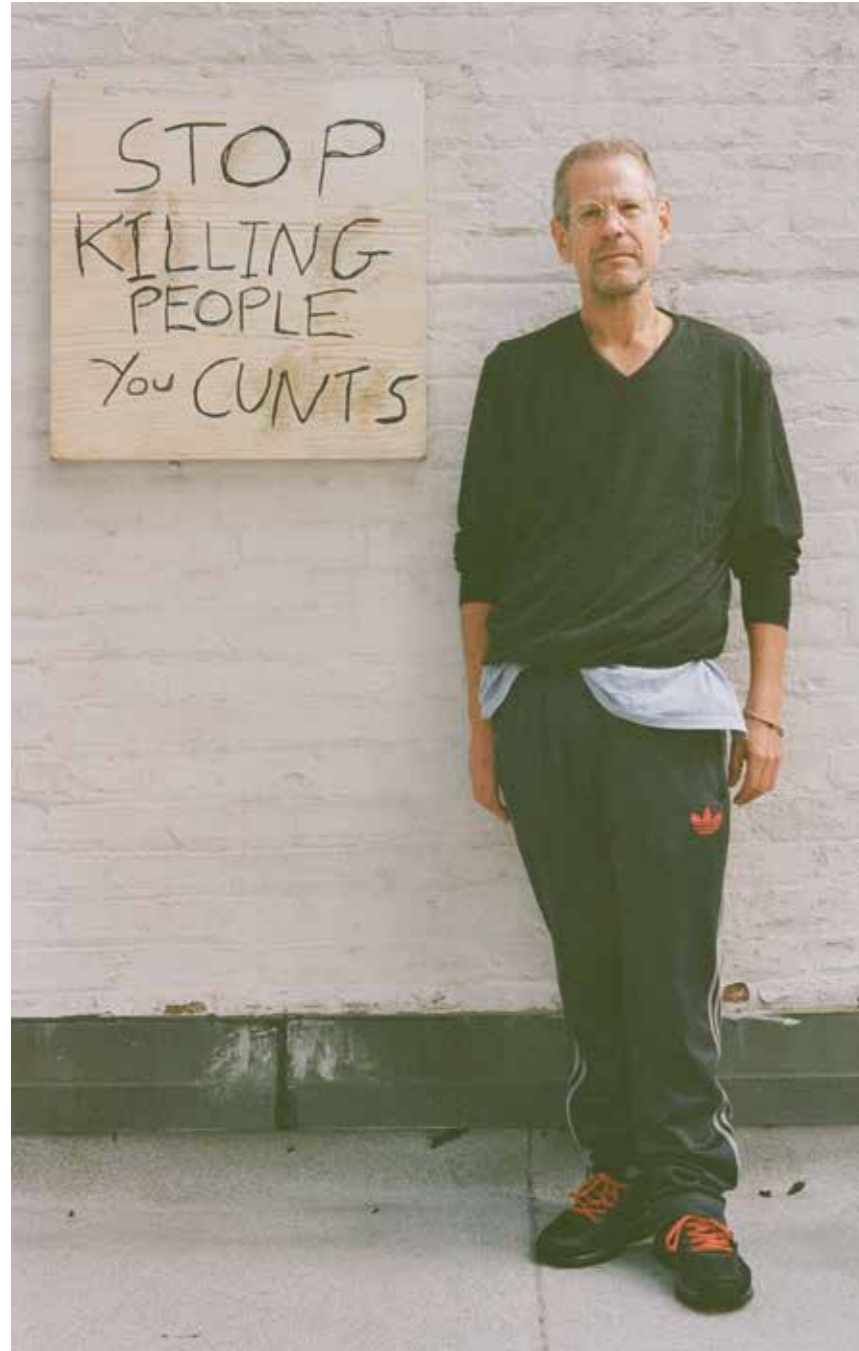 STOP
KILLING
PEOPLE
You CUNTS